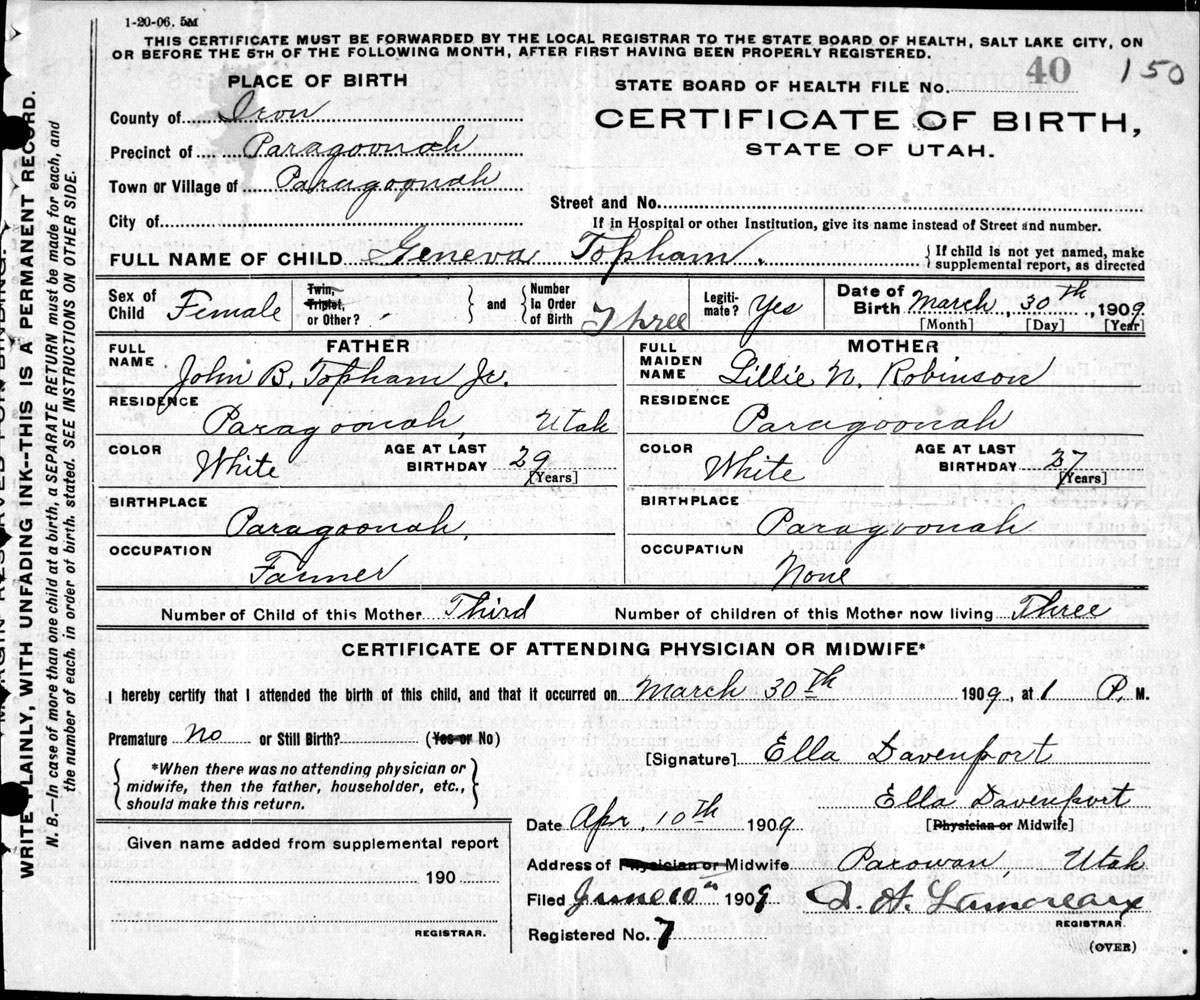 1-20-06. 5M
THIS CERTIFICATE MUST BE FORWARDED BY THE LOCAL REGISTRAR TO THE STATE BOARD OF HEALTH, SALT LAKE CITY, ON
OR BEFORE THE 5TH OF THE FOLLOWING MONTH, AFTER FIRST HAVING BEEN PROPERLY REGISTERED.
PLACE OF BIRTH
County of Iron
Precinct of Paragoonah
Town or Village of Paragoonah
City of
STATE BOARD OF HEALTH FILE No. 40 150
CERTIFICATE OF BIRTH,
STATE OF UTAH.
Street and No.
If in Hospital or other Institution, give its name instead of Street and number.
FULL NAME OF CHILD Geneva Topham. {If child is not yet named, make
supplemental report, as directed
Sex of Child Female
Twin, Triplet, or Other?
and Number in Order of Birth Three
Legitimate? Yes
Date of Birth March, 30th, 1909
[Month] [Day] [Year]
FATHER
FULL NAME John B. Topham Jr.
RESIDENCE Paragoonah, Utah
COLOR White
AGE AT LAST BIRTHDAY 29 [Years]
BIRTHPLACE Paragoonah,
OCCUPATION Farmer
MOTHER
FULL MAIDEN NAME Lillie N. Robinson
RESIDENCE Paragoonah
COLOR White
AGE AT LAST BIRTHDAY 27 [Years]
BIRTHPLACE Paragoonah
OCCUPATION None
Number of Child of this Mother Third Number of children of this Mother now living Three
CERTIFICATE OF ATTENDING PHYSICIAN OR MIDWIFE*
I hereby certify that I attended the birth of this child, and that it occurred on March 30th 1909, at 1 P. M.
Premature no or Still Birth? (Yes or No)
*When there was no attending physician or
midwife, then the father, householder, etc.,
should make this return.
Given name added from supplemental report
190
REGISTRAR.
[Signature] Ella Davenport
Ella Davenport
[Physician or Midwife]
Date Apr. 10th 1909
Address of Physician or Midwife Parowan, Utah
Filed June 10th 1909 Lamoreaux
REGISTRAR
Registered No. 7
(OVER)
WRITE PLAINLY, WITH UNFADING INK--THIS IS A PERMANENT RECORD.
N. B.—In case of more than one child at a birth, a SEPARATE RETURN must be made for each, and
the number of each, in order of birth, stated. SEE INSTRUCTIONS ON OTHER SIDE.